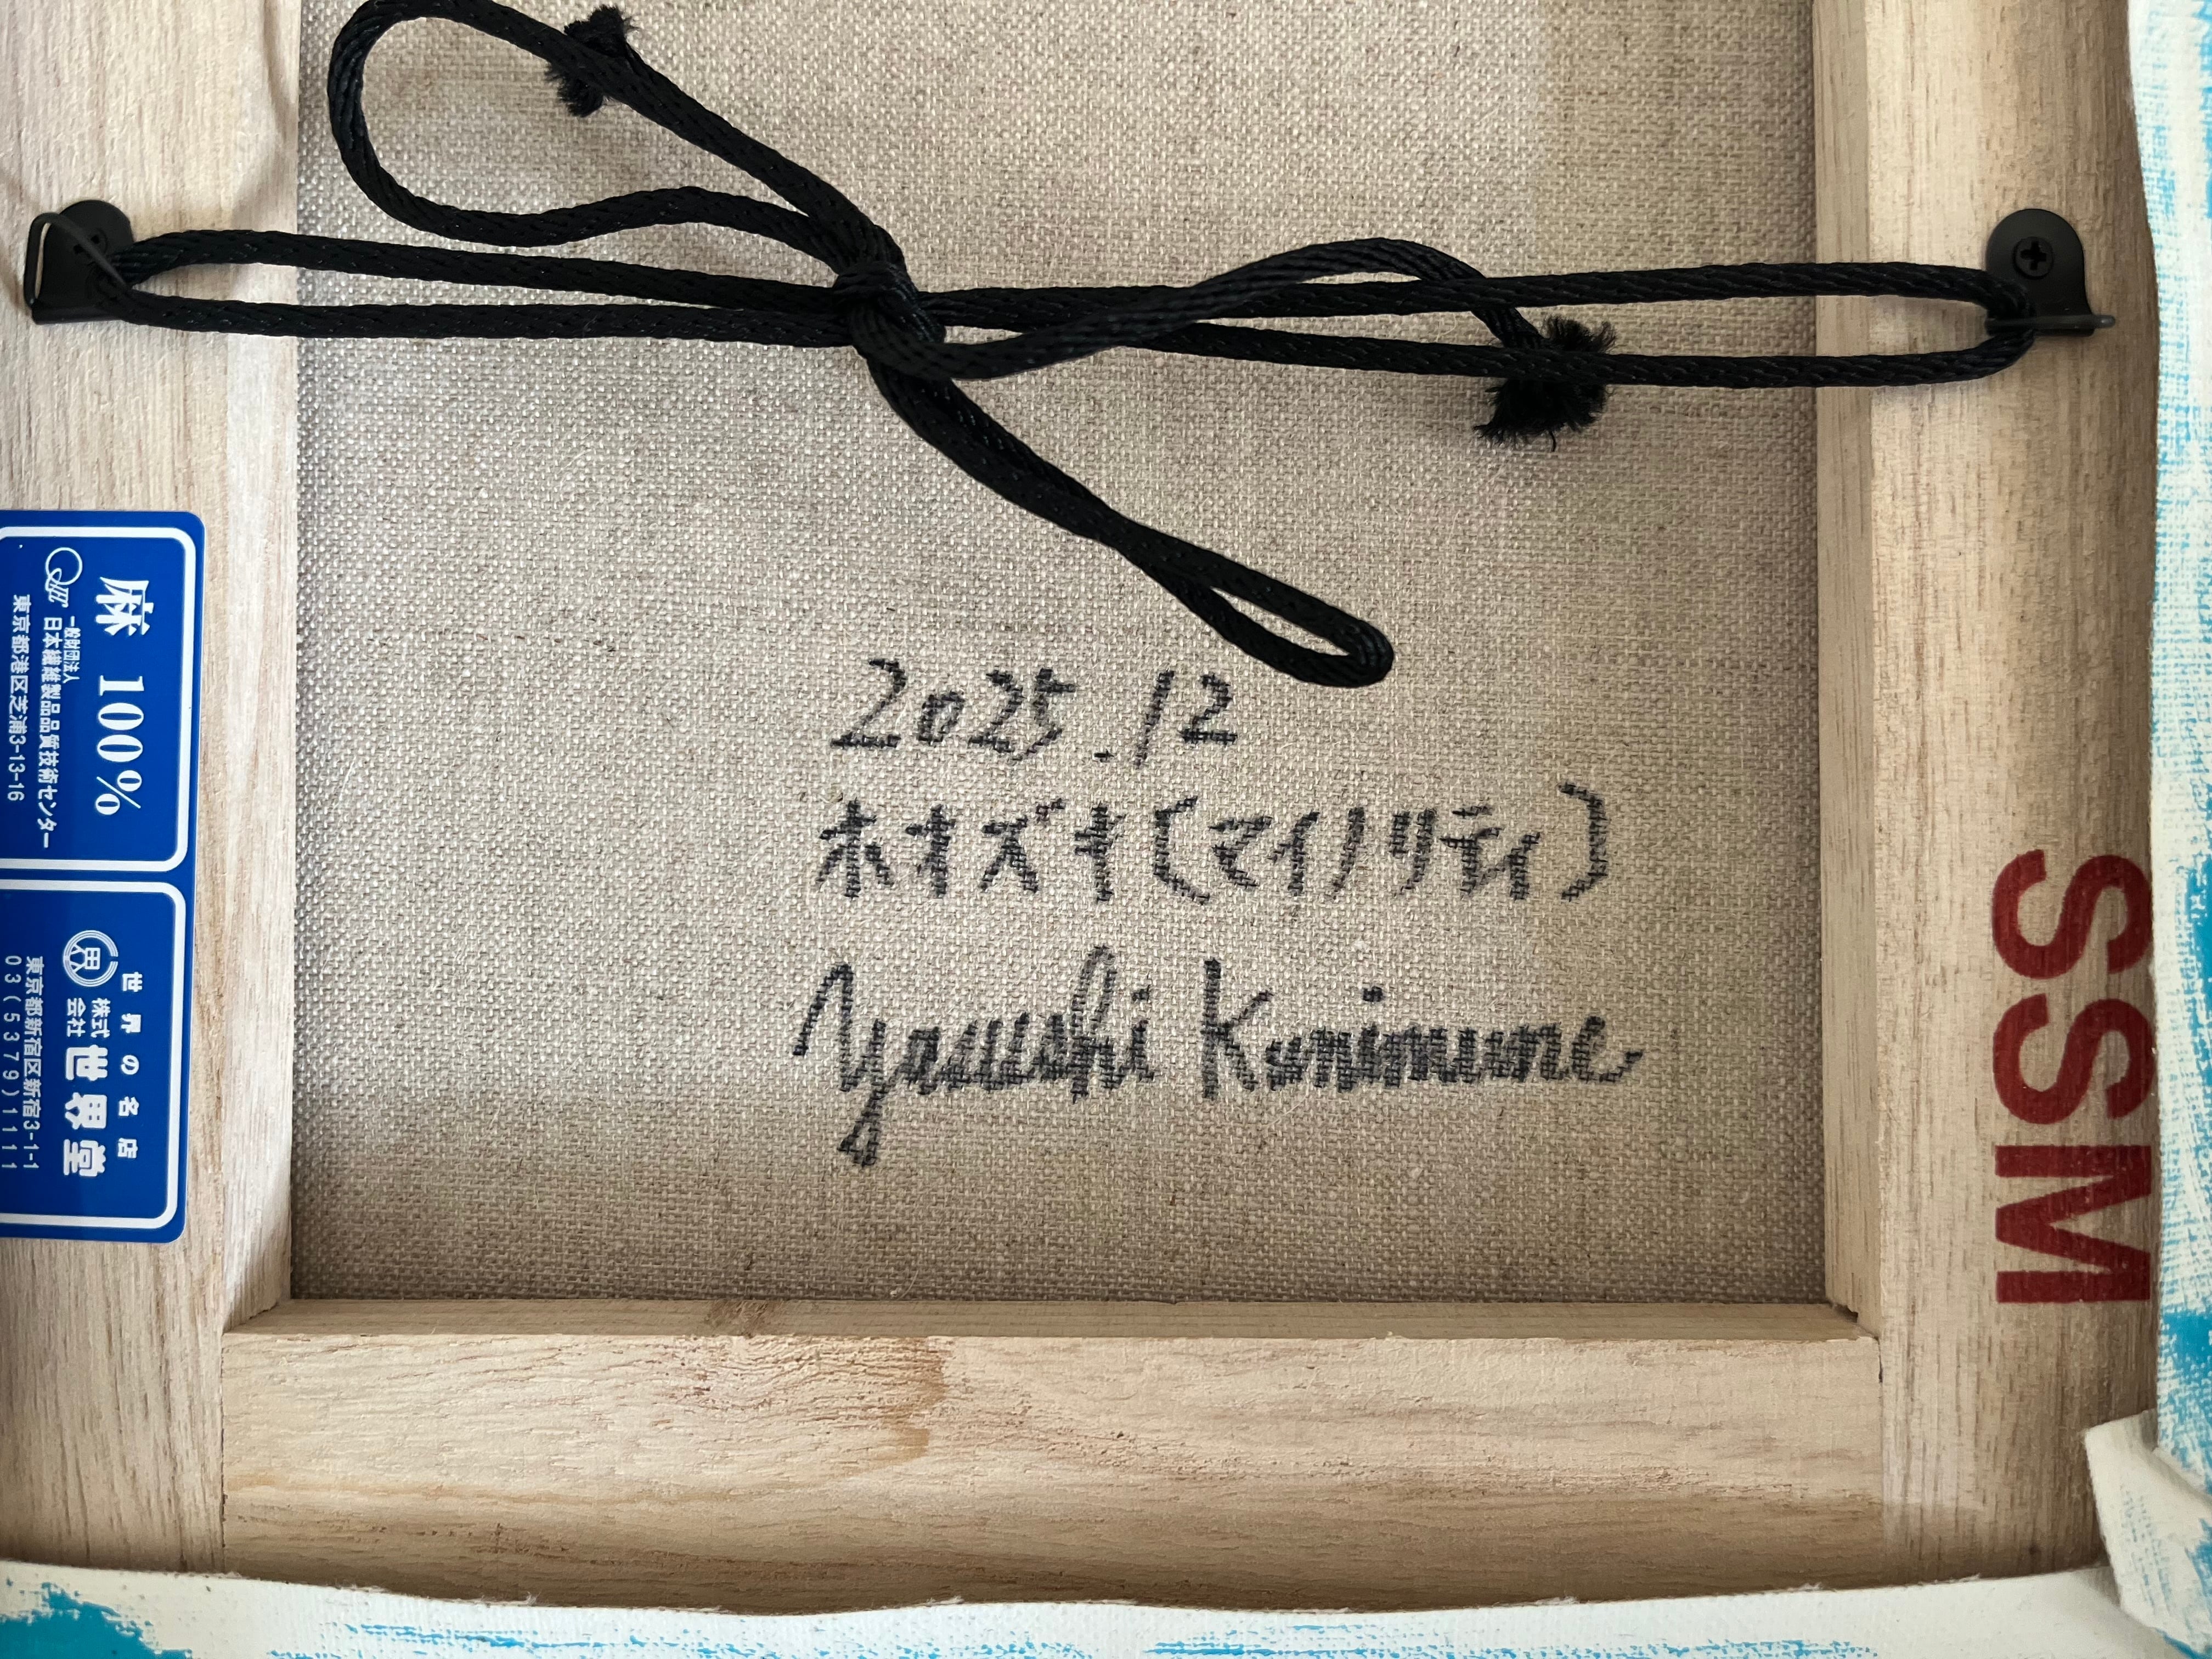 2025.12
ホオズキ(マイノリティ)
Yasushi Kunimune
麻 100%
一般財団法人
日本繊維製品品質技術センター
東京都港区芝浦3-13-16
世界の名店
株式会社 世界堂
東京都新宿区新宿3-1-1
03(5379)1111
SSM